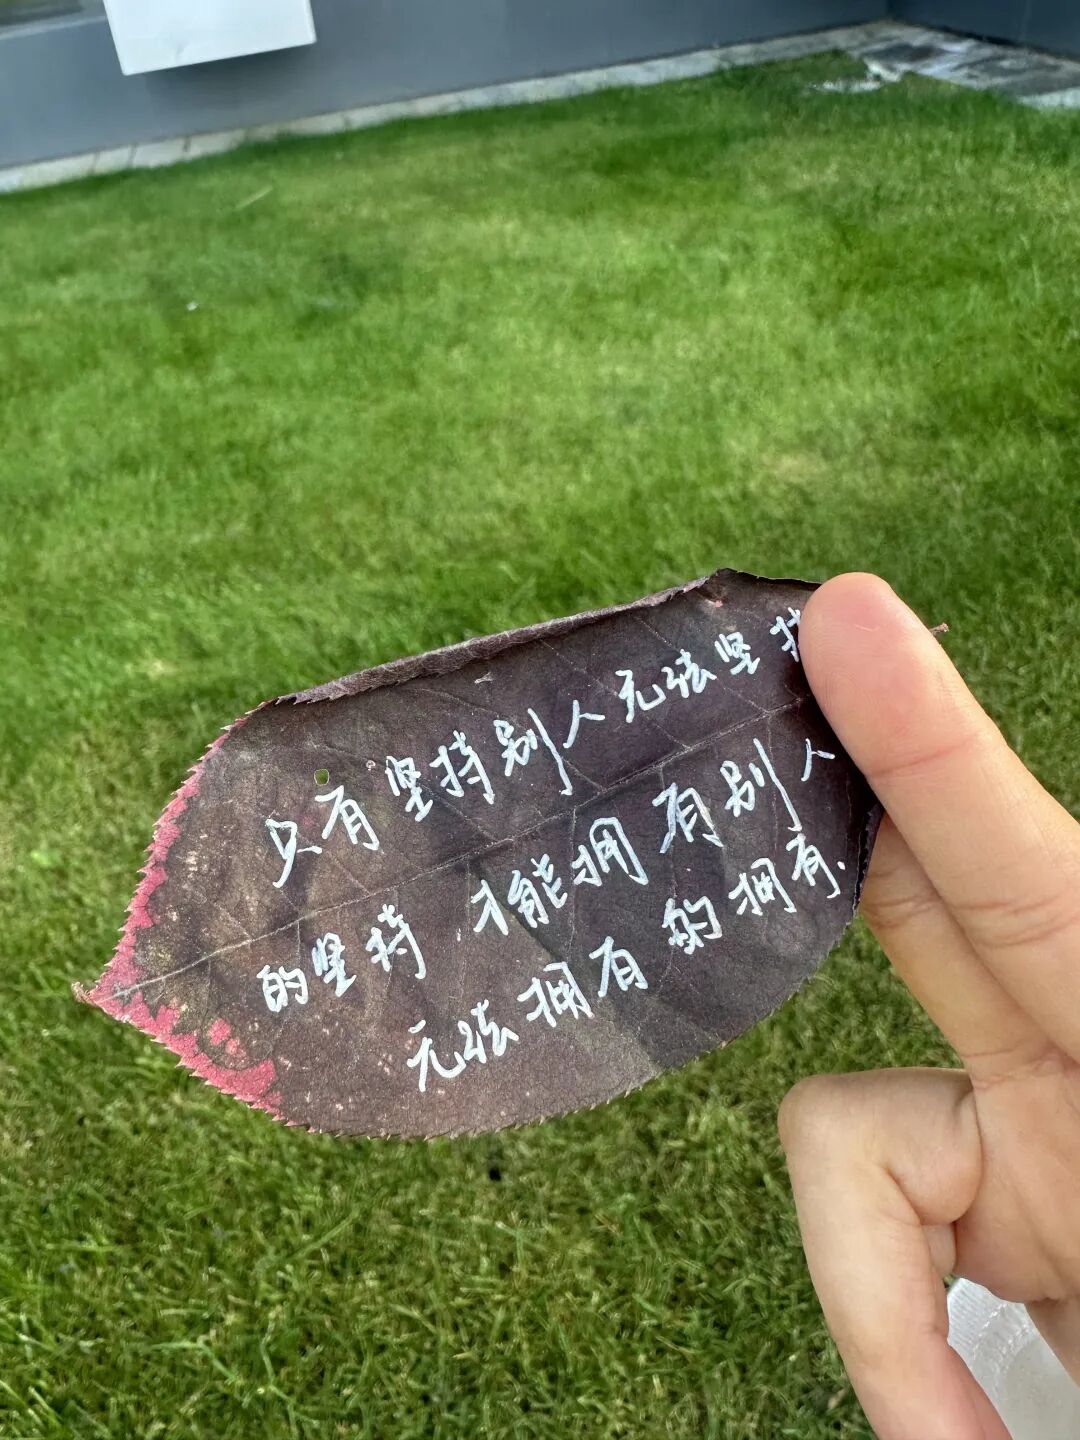 只有坚持别人无法坚持
的坚持 才能拥有别人
无法拥有的拥有.